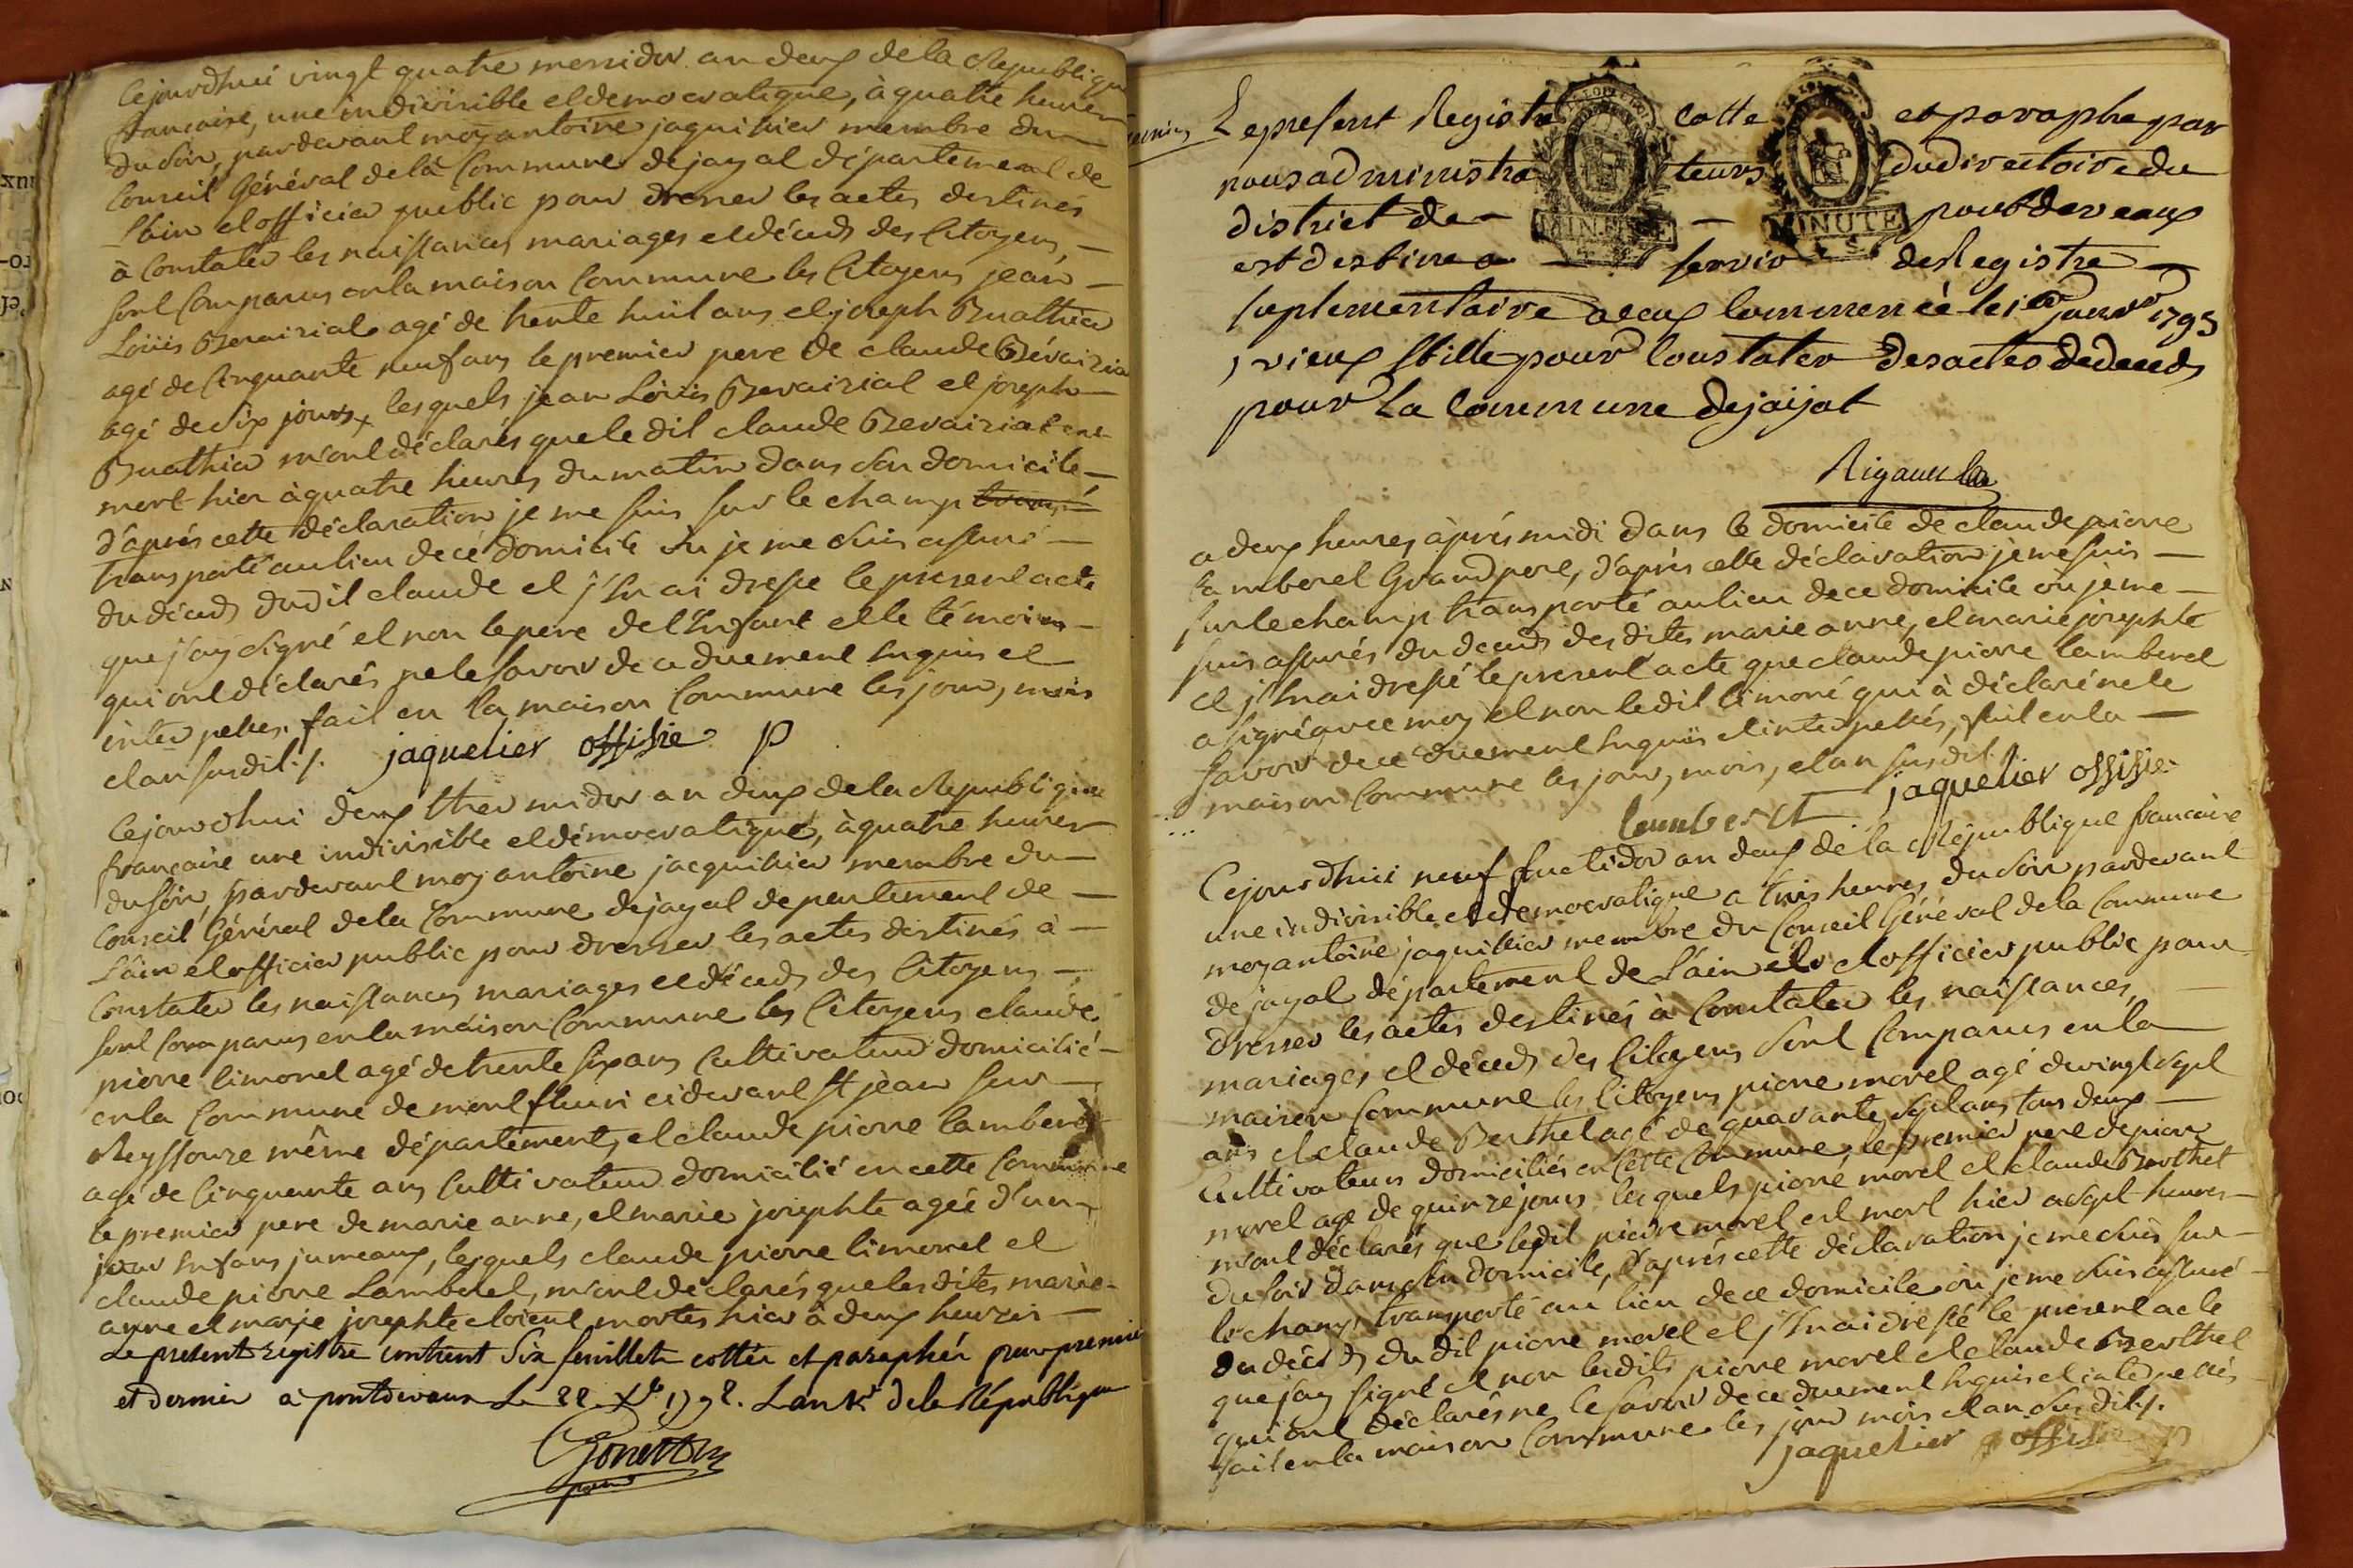 Cejourdhui vingt quatre messidor an deux de la Republique
francaise, une indivisible et democratique, à quatre heures
du soir, pardevant moy antoine jaquillier membre du
Conseil Général de la Commune de jayat département de
l'ain et officier public pour dresser les actes destinés
à Constater les naissances mariages et décéds des Citoyens, —
sont Comparus en la maison Commune les Citoyens jean —
Loüis agé de trente huit ans et joseph Buathier
agé de Cinquante neuf ans le premier pere de claude
agé de six jours, lesquels jean Loüis et joseph —
Buathier m'ont déclarés que le dit claude est
mort hier à quatre heures du matin dans son domicile, —
d'après cette déclaration je me suis sur le champ
transporté au lieu de ce domicile où je me suis assuré —
du décéds dudit claude et j'en ai dressé le present acte
que j'ay signé et non le pere de l'enfant et le témoins —
qui ont déclarés ne le savoir de ce duement enquis et
interpellés. fait en la maison Commune les jour, mois
et an susdit ./. jaquelier offisie p
Cejourdhui deux thermidor an deux de la Republique
francaise une indivisible et démocratique, à quatre heures
du soir, pardevant moy antoine jacquillier membre du —
Conseil Général de la Commune de jayat departement de —
L'ain et officier public pour dresser les actes destinés à —
Constater les naissances mariages et décéds des Citoyens —
sont Comparus en la maison Commune les Citoyens claude
pierre limonet agé de trente six ans Cultivateur domicilié —
en la Commune de montfleuri cidevant st jean sur —
Reyssouze même département, et claude pierre lamberet
agé de Cinquante ans Cultivateur domicilié en cette Commune
le premier pere de marie anne, et marie josephte agée d'un
jour enfans jumeaux, lesquels claude pierre limonet et
claude pierre Lamberet, m'ont déclarés que les dites marie
anne et marie josephte étoient mortes hier à deux heures —
Le present registre contient six feuillets cottés et paraphés par premier
et dernier a pontdevaux Le 22 Xbre 1792. Lan 1er de la République
Gonet
Le present Registre cotte et paraphe par
nous administra teurs du directoire du
district de — — pontdevaux
est destine a — servir de Registre —
suplementaire a ceux commencé le 1er janvr 1793
, vieux stille pour Constater des actes de deceds
pour La Commune de jaijat
MINUTE
MINUTE
a deux heures après midi dans le domicile de claude pierre
lamberet Grand pere, d'après cette déclaration je me suis —
sur le champ transporté au lieu de ce domicile où je me —
suis assurés du deceds des dites marie anne, et marie josephte
et j'en ai dressé le present acte que claude pierre lamberet
a signé avec moy et non ledit limoné qui à déclaré ne le
savoir de ce duement enquis et interpellés, fait en la —
maison Commune les jour, mois, et an susdit.
lamberet jaquelier offisie
Cejourdhui neuf fructidor an deux de la République francaise
une indivisible et democratique a trois heures du soir pardevant
moy antoine jaquillier membre du Conseil Général de la Commune
de jayat département de L'ain et officier public pour
dresser les actes destinés à Constater les naissances,
mariages, et décéds des Citoyens sont Comparus en la
maison Commune les Citoyens pierre morel agé de vingt sept
ans et claude Berthet agé de quarante sept ans tous deux —
Cultivateurs domiciliés en cette Commune, le premier pere de pierre
morel agé de quinze jours lesquels pierre morel et claude Berthet
m'ont déclarés que ledit pierre morel est mort hier a sept heures —
du soir dans son domicile, d'après cette déclaration je me suis sur —
le champ transporté au lieu de ce domicile où je me suis assuré —
du décéds dudit pierre morel et j'en ai dressé le present acte
que j'ay signé et non lesdits pierre morel et claude Berthet
qui ont déclarés ne le savoir de ce duement enquis et interpellés
fait en la maison Commune les jour mois et an susdit ./.
jaquelier offisie p